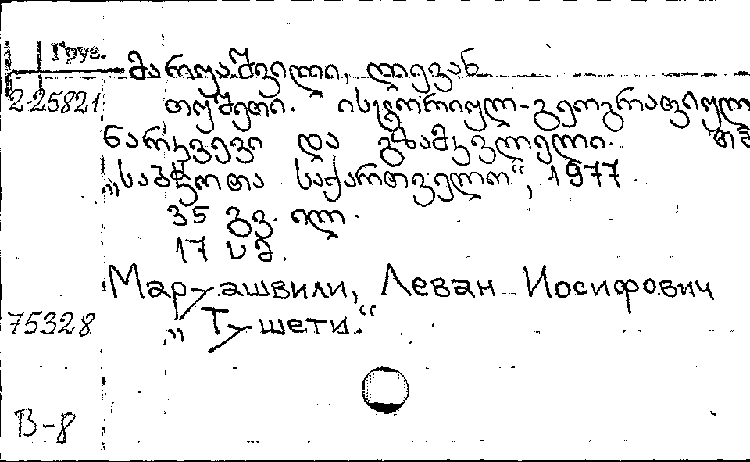 Груз.
მარუაშვილი, ლევან
2-25821 თუშეთი. ისტორიულ-გეოგრაფიულ
ნარკვევი და გზამკვლელი. თბ
„საბჭოთა საქართველო“, 1977
35 გვ. ილ.
17 სმ.
Маруашвили, Леван Иосифович
75328 „Тушети.“
В-8